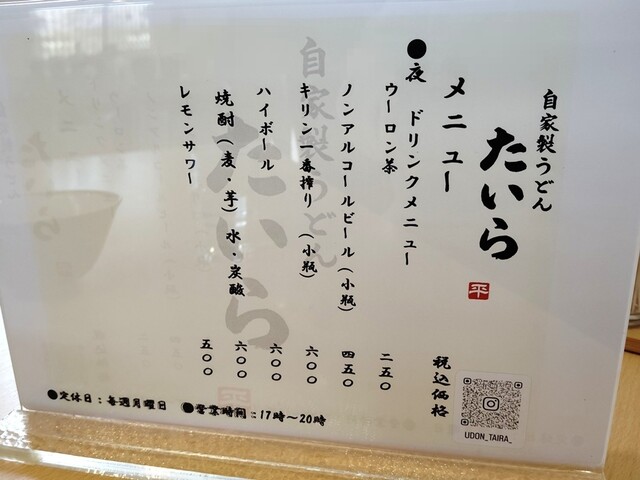 自家製うどん
たいら
平
メニュー
税込価格
●夜 ドリンクメニュー
ウーロン茶 二五〇
ノンアルコールビール(小瓶) 四五〇
キリン一番搾り(小瓶) 六〇〇
ハイボール 六〇〇
焼酎(麦・芋) 水・炭酸 六〇〇
レモンサワー 五〇〇
自家製うどん
たいら
平
●定休日:毎週月曜日 ●営業時間:17時〜20時
UDON_TAIRA_